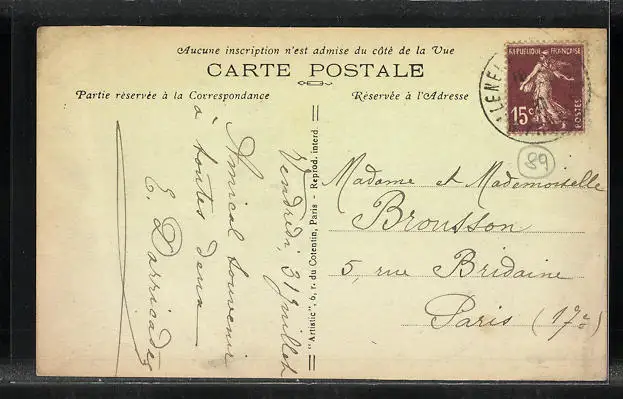 Aucune inscription n'est admise du côté de la Vue
CARTE POSTALE
Partie réservée à la Correspondance
Réservée à l'Adresse
Vendredi, 31 Juillet
Amical souvenir
à toutes deux
E. Darricades
"Artistic", 6, r. du Cotentin, Paris - Reprod. interd.
REPUBLIQUE FRANÇAISE
15c
POSTES
89
Madame et Mademoiselle
Brousson
5, rue Bridaine
Paris (17e)